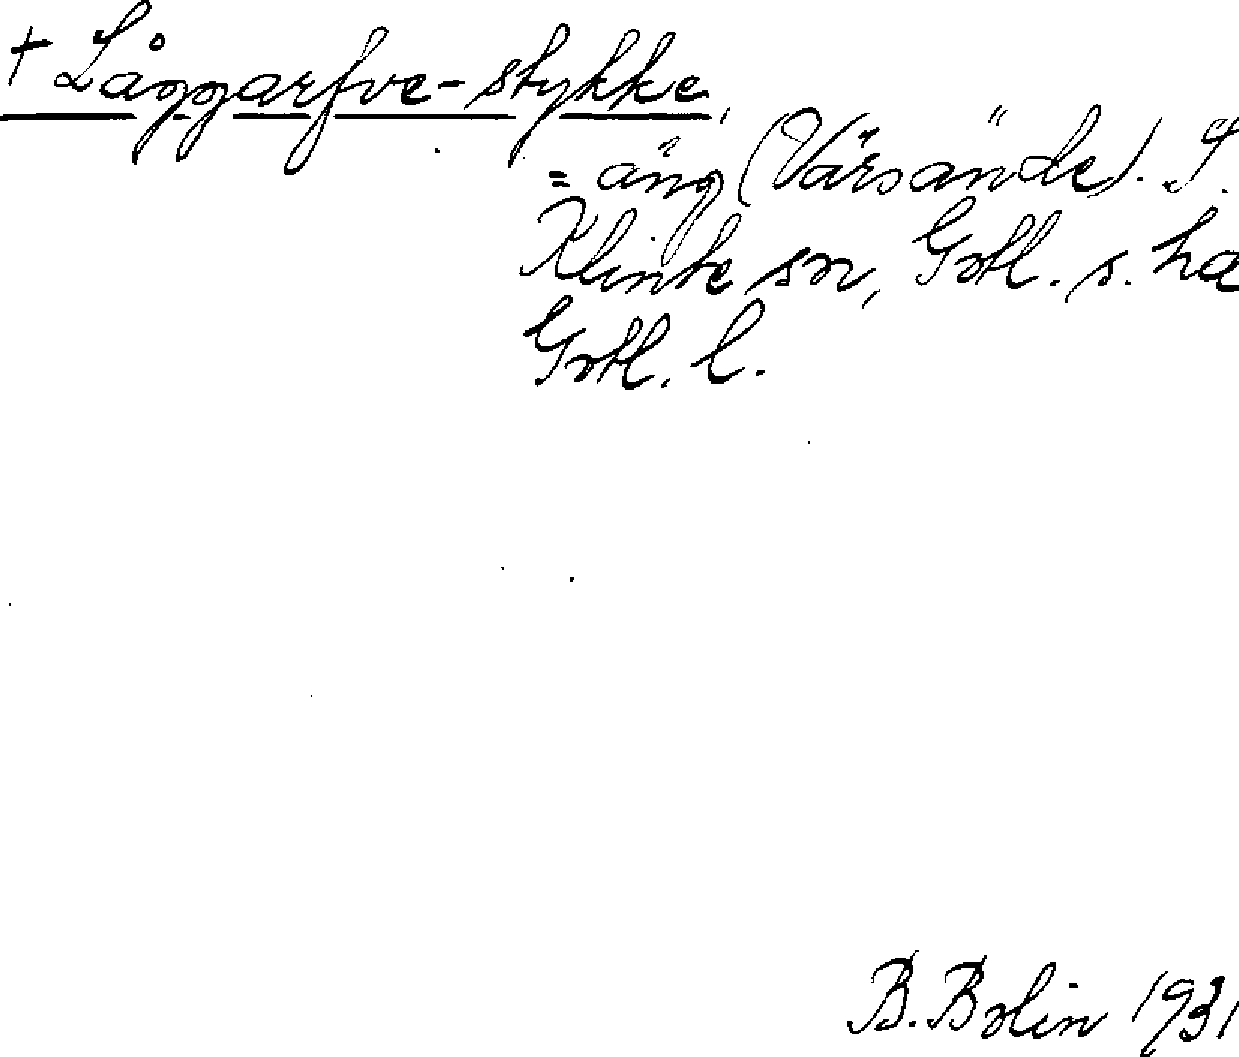 + Låggarfve-stykke,
= äng (Värsände). I.
Klinte sn, Gotl. s. ha
Gotl. l.
B. Bolin 1931